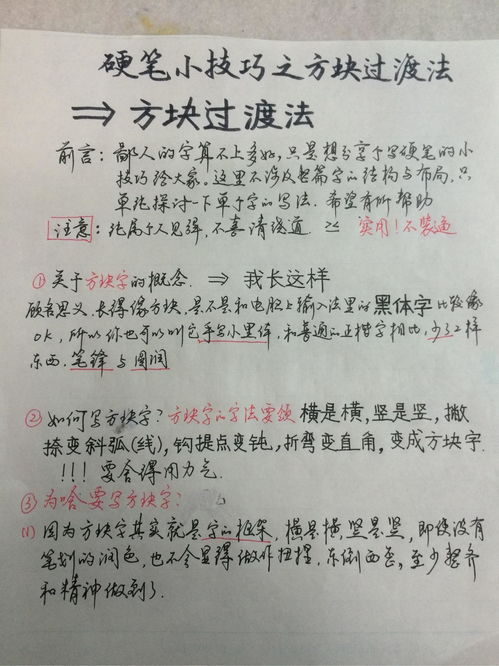 硬笔小技巧之方块过渡法
⇒ 方块过渡法
前言：鄙人的字算不上多好，只是想分享于写硬笔的小
技巧给大家。这里不涉及整篇字的结构与布局，只
单纯探讨一下单个字的写法。希望有所帮助
注意：纯属个人见解，不喜请绕道. ≥≤ 实用！不装逼
① 关于方块字的概念. ⇒ 我长这样
顾名思义，长得像方块，是不是和电脑上输入法里的黑体字比较像
OK，所以你也可以叫它手写小黑体，和普通的正楷字相比，少了2样
东西.笔锋与圆润
② 如何写方块字？方块字的字法要领 横是横，竖是竖，撇
捺变斜弧(线)，钩提点变钝，折弯变直角，变成方块字.
!!! 要舍得用力气.
③ 为啥要写方块字？
(1) 因为方块字其实就是字的框架，横是横，竖是竖，即使没有
笔划的润色，也不会显得做作扭捏，东倒西歪，至少整齐
和精神做到了.